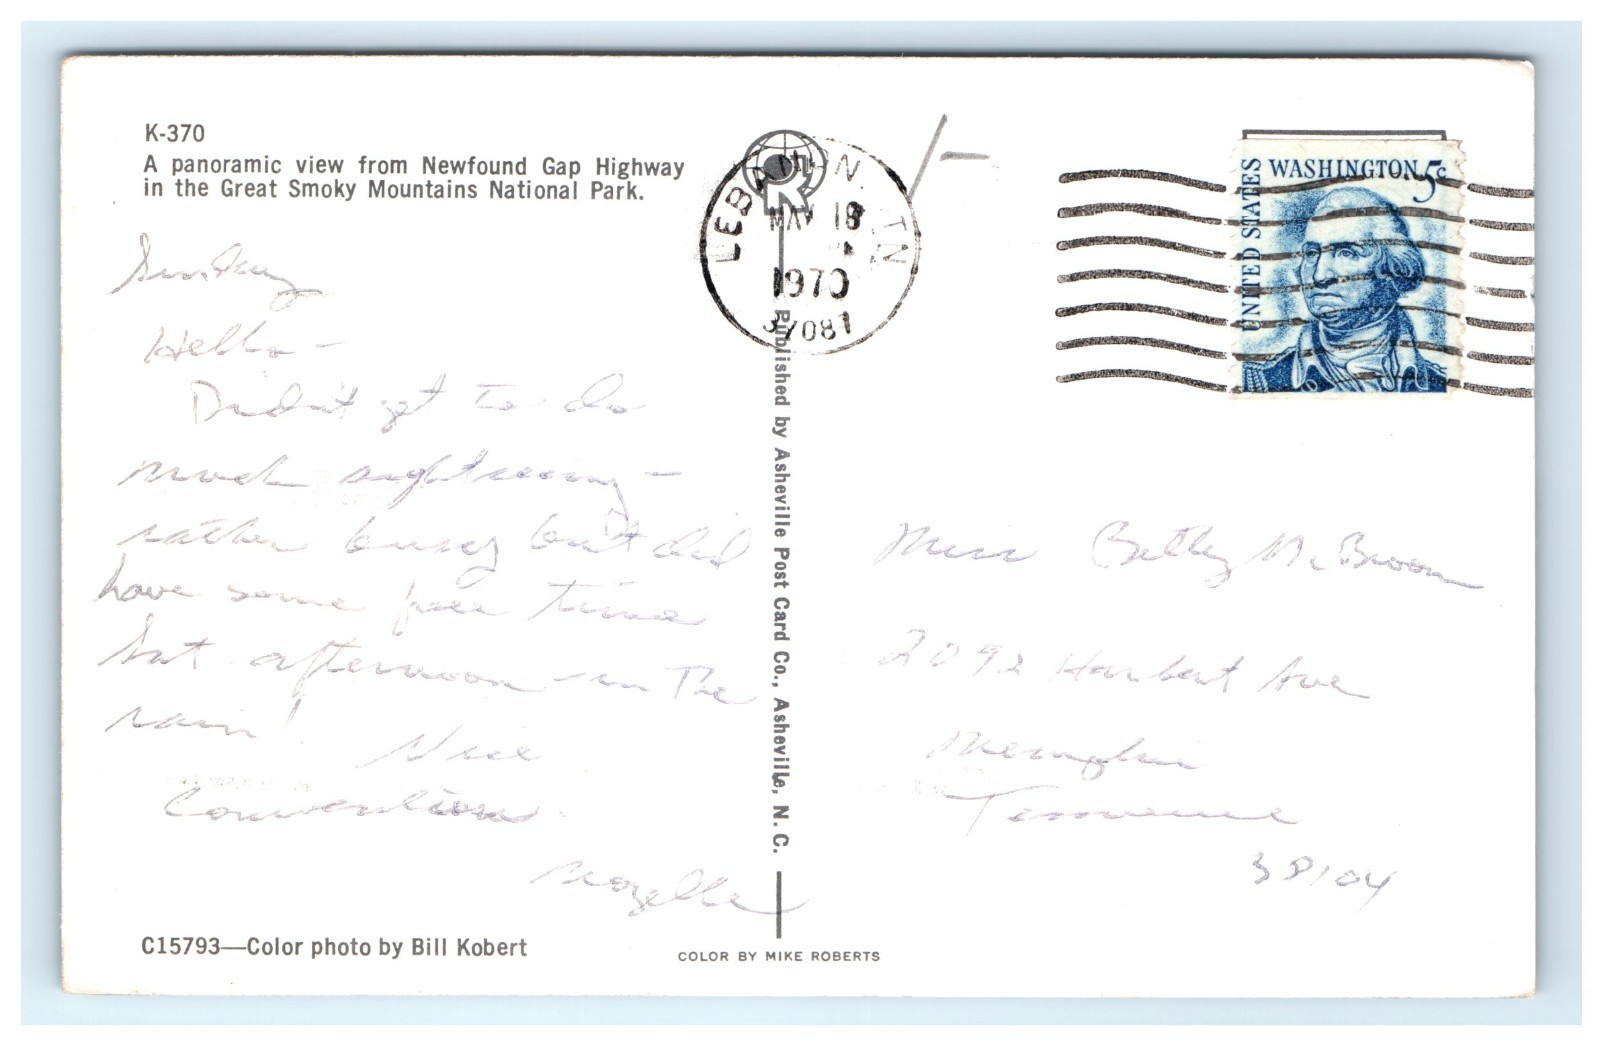 K-370
A panoramic view from Newfound Gap Highway
in the Great Smoky Mountains National Park.
Sunday
Hello-
Didn't get to do
much sightseeing -
rather busy but did
have some free time
Sat. afternoon - in The
rain! Nice
Convention.
Mozelle
C15793—Color photo by Bill Kobert
Published by Asheville Post Card Co., Asheville, N. C.
COLOR BY MIKE ROBERTS
LEBANON TN
MAY 18
1970
37087
UNITED STATES
WASHINGTON 5c
Miss Betty McBroom
2092 Harbert Ave
Memphis
Tennessee
38104